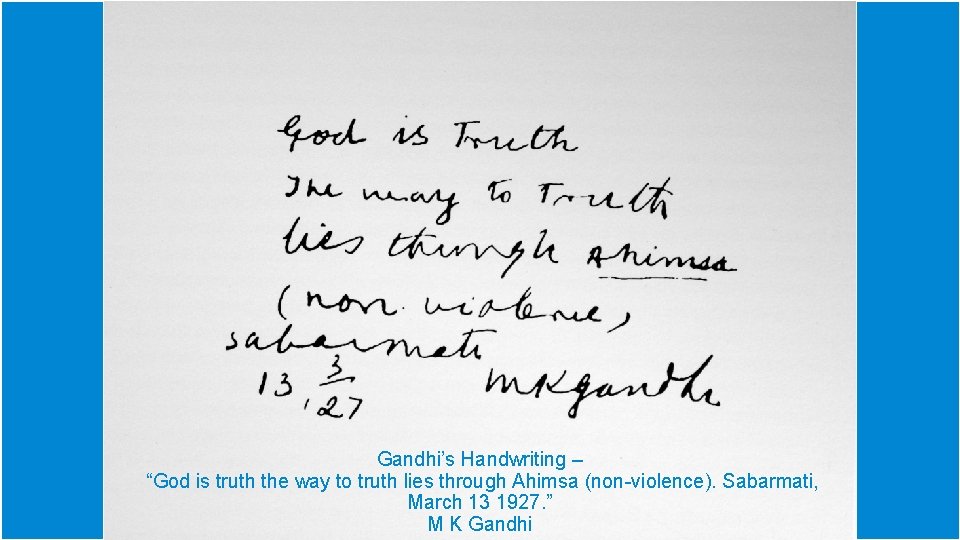 God is Truth
The way to Truth
lies through Ahimsa
(non-violence)
Sabarmati
13, 3
'27
MKGandhi
Gandhi’s Handwriting –
“God is truth the way to truth lies through Ahimsa (non-violence). Sabarmati,
March 13 1927.”
M K Gandhi